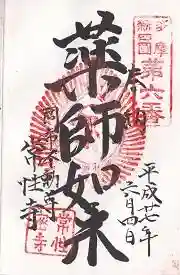 多摩
新四国
第六番
奉拝
平成廿七年
六月四日
薬師如来
常性寺
常性
寺